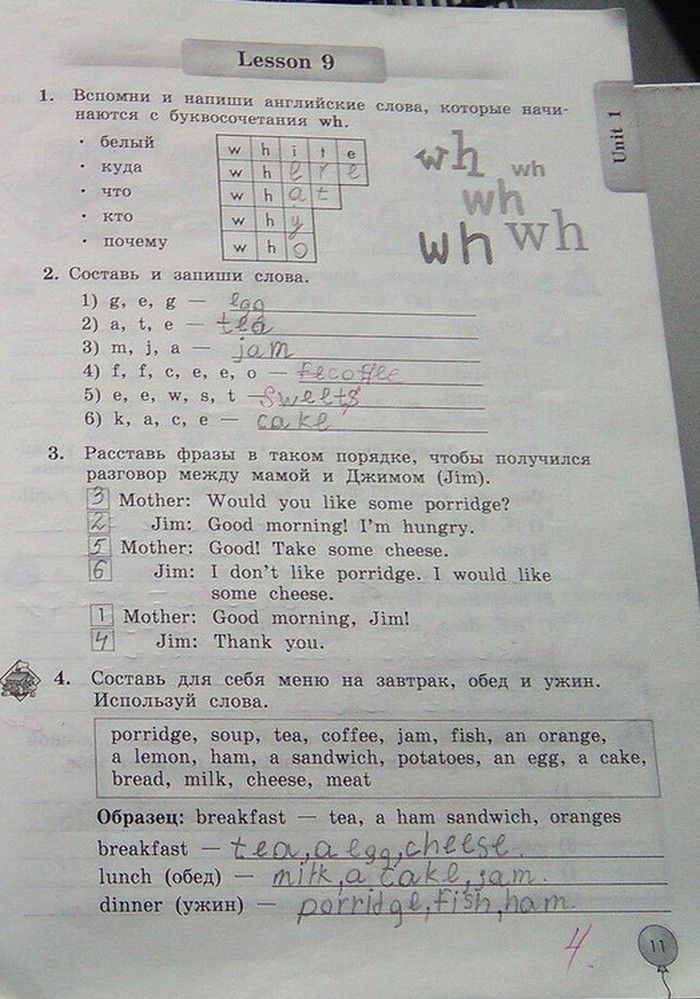 Lesson 9
Unit 1
1. Вспомни и напиши английские слова, которые начи-
наются с буквосочетания wh.
• белый w h i t e
• куда w h e r e
• что w h a t
• кто w h y
• почему w h o
wh wh
wh
wh wh
2. Составь и запиши слова.
1) g, e, g — egg
2) a, t, e — tea
3) m, j, a — jam
4) f, f, c, e, e, o — fecoffee
5) e, e, w, s, t — sweets
6) k, a, c, e — cake
3. Расставь фразы в таком порядке, чтобы получился
разговор между мамой и Джимом (Jim).
3 Mother: Would you like some porridge?
2 Jim: Good morning! I'm hungry.
5 Mother: Good! Take some cheese.
6 Jim: I don't like porridge. I would like
some cheese.
1 Mother: Good morning, Jim!
4 Jim: Thank you.
4. Составь для себя меню на завтрак, обед и ужин.
Используй слова.
porridge, soup, tea, coffee, jam, fish, an orange,
a lemon, ham, a sandwich, potatoes, an egg, a cake,
bread, milk, cheese, meat
Образец: breakfast — tea, a ham sandwich, oranges
breakfast — tea, a egg, cheese.
lunch (обед) — milk, a cake, jam.
dinner (ужин) — porridge, fish, ham.
4.
11